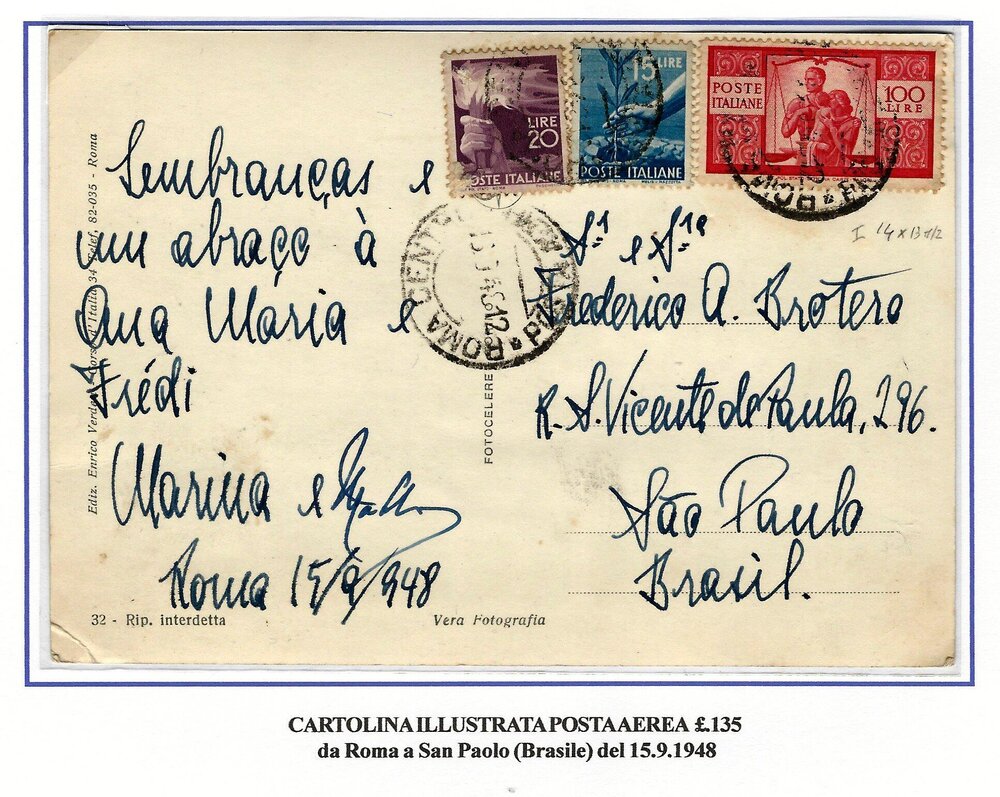 LIRE
20
POSTE ITALIANE
15 LIRE
POSTE ITALIANE
POSTE
ITALIANE
100
LIRE
I 14 x 13 1/2
Lembranças e
um abraço à
Ana Maria e
Frédi
Marina e
Roma 15/9/948
ROMA CENTRO
ROMA
Sr. e Sra
Frederico A. Brotero
R. S. Vicente de Paula, 296.
São Paulo
Brasil.
Ediz. Enrico Verdesi Corso d'Italia 34 Telef. 82-035 - Roma
FOTOCELERE
32 - Rip. interdetta
Vera Fotografia
CARTOLINA ILLUSTRATA POSTA AEREA £.135
da Roma a San Paolo (Brasile) del 15.9.1948